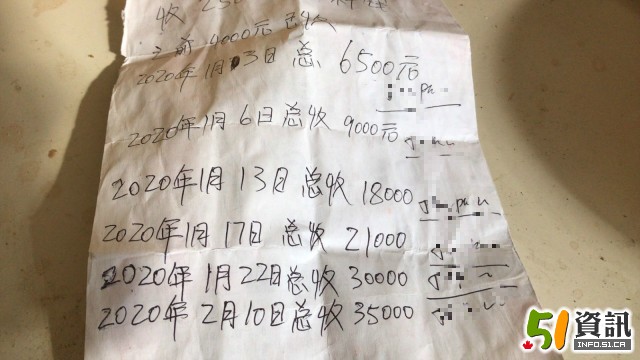 收 250
之前 4000元 已收
2020年1月3日 总 6500元
2020年1月6日总收 9000元
2020年1月13日 总收 18000
2020年1月17日 总收 21000
2020年1月22日总收 30000
2020年2月10日总收 35000
51資訊
INFO.51.CA